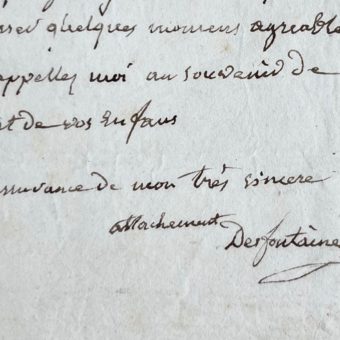 sser quelques momens agreable
appelles moi au souvenir de
et de vos enfans
ssurance de mon très sincere
attachement
Desfontaine